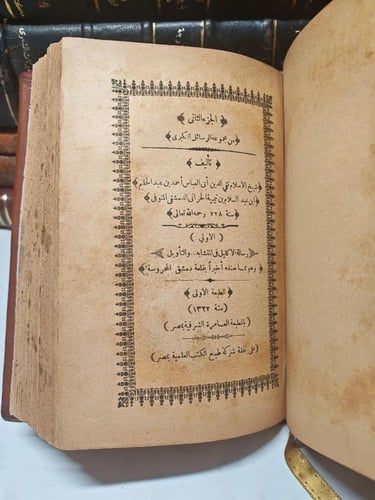 الجزء الثاني
من مجموعة الرسائل الكبرى
تأليف
شيخ الاسلام تقي الدين أبى العباس أحمد بن عبد الحليم
ابن عبد السلام بن تيمية الحرانى الدمشقى المتوفى
سنة ٧٢٨ رحمه الله تعالى
( الاولى )
رسالة الاكليل فى المتشابه .. والتأويل
وهو مما صنفه أخيراً بقلعة دمشق المحروسة
الطبعة الاولى
( سنة ١٣٢٣ )
( بالمطبعة العامرة الشرفية بمصر )
( على نفقة شركة طبع الكتب العلمية بمصر )